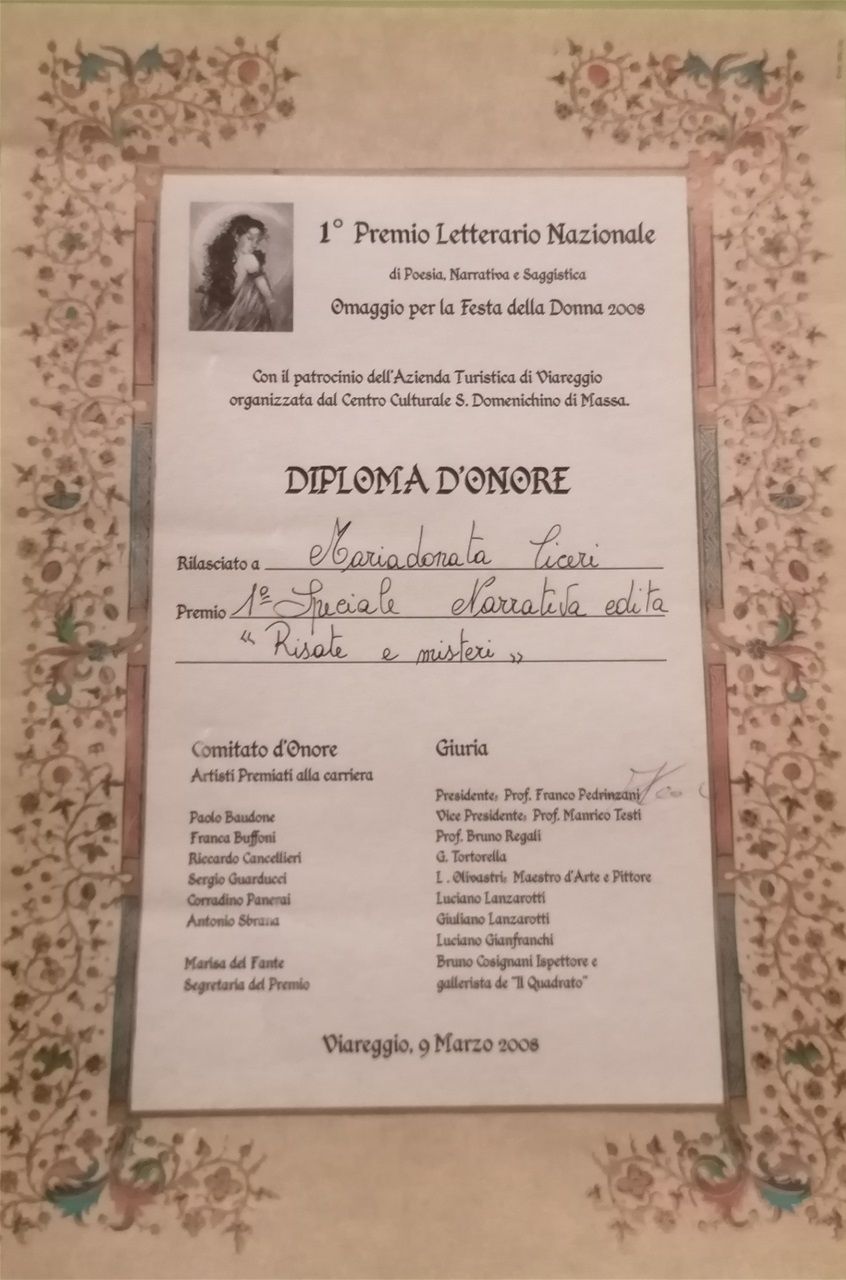 1° Premio Letterario Nazionale
di Poesia, Narrativa e Saggistica
Omaggio per la Festa della Donna 2008
Con il patrocinio dell'Azienda Turistica di Viareggio
organizzata dal Centro Culturale S. Domenichino di Massa.
DIPLOMA D'ONORE
Rilasciato a Mariadonata Ciceri
Premio 1º Speciale Narrativa edita
“Risate e misteri”
Comitato d'Onore
Artisti Premiati alla carriera
Paolo Baudone
Franca Buffoni
Riccardo Cancellieri
Sergio Guarducci
Corradino Panerai
Antonio Sbrana
Marisa del Fante
Segretaria del Premio
Giuria
Presidente: Prof. Franco Pedrinzani
Vice Presidente: Prof. Manrico Testi
Prof. Bruno Regali
G. Tortorella
L . Olivastri: Maestro d'Arte e Pittore
Luciano Lanzarotti
Giuliano Lanzarotti
Luciano Gianfranchi
Bruno Cosignani Ispettore e
gallerista de "Il Quadrato"
Viareggio, 9 Marzo 2008